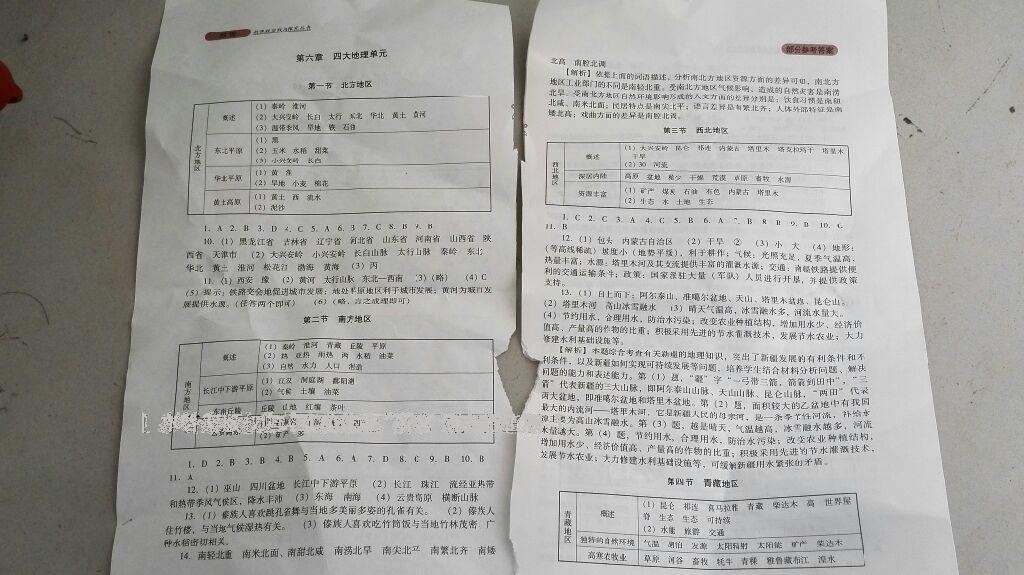 第六章 四大地理单元
第一节 北方地区
北方地区
概述
(1) 秦岭 淮河
(2) 大兴安岭 长白 太行 东北 华北 黄土 黄河
(3) 温带季风 旱地 铁 石油
东北平原
(1) 黑
(2) 玉米 水稻 甜菜
(3) 小兴安岭 长白
华北平原
(1) 黄 淮
(2) 旱地 小麦 棉花
黄土高原
(1) 黄土 西 流水
(2) 泥沙
1. A 2. B 3. D 4. C 5. A 6. A 7. C 8. B 9. D
10. (1) 黑龙江省 吉林省 辽宁省 河北省 山东省 河南省 山西省 陕
西省 天津市 (2) 大兴安岭 小兴安岭 长白山脉 太行山脉 秦岭 东北
华北 黄土 淮河 松花江 渤海 黄海 (3) 丙
11. (1) 西安 豫 (2) 黄河 太行山脉 东北—西南 (3) (略) (4) C
(5) 提示: 铁路交会地促进城市发展; 地处平原地区利于城市发展; 黄河为城市发
展提供水源。(任答两个即可) (6) (略, 言之成理即可)
第二节 南方地区
南方地区
概述
(1) 秦岭 淮河 青藏 丘陵 平原
(2) 热 亚热 雨热 两 水稻 油菜
(3) 自然 水力 人口
长江中下游平原
(1) 江汉 洞庭湖 鄱阳湖
(2) 气候 土壤 油菜
东南丘陵
丘陵 山地 红壤 茶叶
(2) 矿产
1. D 2. B 3. B 4. B 5. A 6. A 7. D 8. C 9. B 10. B
11. A
12. (1) 巫山 四川盆地 长江中下游平原 (2) 长江 珠江 流经亚热带
和热带季风气候区, 降水丰沛 (3) 东海 南海 (4) 云贵高原 横断山脉
13. (1) 傣族人喜欢跳孔雀舞与当地多美丽多姿的孔雀有关。 (2) 傣族人
住竹楼, 与当地气候湿热有关。 (3) 傣族人喜欢吃竹筒饭与当地竹林茂密、广
种水稻密切相关。
14. 南轻北重 南米北面、南甜北咸 南涝北旱 南尖北平 南繁北齐 南矮
部分参考答案
北高 南腔北调
【解析】依据上面的词语描述, 分析南北方地区资源方面的差异可知, 南北方
地区工业部门的不同是南轻北重。受南北方地区气候影响, 造成的自然灾害是南涝
北旱。受南北方地区自然环境影响形成的人文方面的差异分别是: 饮食习惯是南甜
北咸、南米北面; 民居特点是南尖北平; 语言差异是南繁北齐; 人体外部特征是南
矮北高; 戏曲方面的差异是南腔北调。
第三节 西北地区
西北地区
概述
(1) 大兴安岭 昆仑 祁连 内蒙古 塔里木 塔克拉玛干 塔里木
干旱
(2) 30 河流
深居内陆
高原 盆地 稀少 干燥 荒漠 草原 畜牧 水源
资源丰富
(1) 矿产 煤炭 石油 有色 内蒙古 塔里木
(2) 生态 水 土地 生态
1. C 2. C 3. A 4. C 5. B 6. A 7. B 8. B 9. D 10. C
11. B
12. (1) 包头 内蒙古自治区 (2) 干旱 ② (3) 小 大 (4) 地形:
(等高线稀疏) 坡度小 (地势平缓), 利于耕作; 气候: 光照充足, 夏季气温高,
热量丰富; 水源: 塔里木河及其支流提供丰富的灌溉水源; 交通: 南疆铁路提供便
利的交通运输条件; 政策: 国家派驻大量 (军队) 人员进行开垦, 并提供政策
支持。
13. (1) 自上而下: 阿尔泰山、准噶尔盆地、天山、塔里木盆地、昆仑山。
(2) 塔里木河 高山冰雪融水 (3) 晴天气温高, 冰雪融水多, 河流水量大。
(4) 节约用水, 合理用水, 防治水污染; 改变农业种植结构, 增加用水少、经济价
值高、产量高的作物的比重; 积极采用先进的节水灌溉技术, 发展节水农业; 大力
修建水利基础设施等。
【解析】本题综合考查有关新疆的地理知识, 突出了新疆发展的有利条件和不
利条件, 以及新疆如何实现可持续发展等问题, 培养学生结合材料分析问题、解决
问题的能力和表达能力。第 (1) 题, “疆” 字 “一弓带三箭, 箭箭到田中”, “三
箭” 代表新疆的三大山脉, 即阿尔泰山山脉、天山山脉、昆仑山脉, “两田” 代表
两大盆地, 即准噶尔盆地和塔里木盆地。第 (2) 题, 面积较大的乙盆地中有我国
最大的内流河——塔里木河, 它是新疆人民的母亲河, 是一条季节性河流, 补给水
源主要为高山冰雪融水。第 (3) 题, 越是晴天, 气温越高, 冰雪融水越多, 河流
水量越大。第 (4) 题, 节约用水, 合理用水, 防治水污染; 改变农业种植结构,
增加用水少、经济价值高、产量高的作物的比重; 积极采用先进的节水灌溉技术,
发展节水农业; 大力修建水利基础设施等, 可缓解新疆用水紧张的矛盾。
第四节 青藏地区
青藏地区
概述
(1) 昆仑 祁连 喜马拉雅 青藏 柴达木 高 世界屋
脊 生态 生态 可持续
(2) 水能 旅游 交通
独特的自然环境
气温 湖泊 发源 太阳辐射 太阳能 矿产 柴达木
高寒农牧业
草原 河谷 畜牧 牦牛 青稞 雅鲁藏布江 湟水